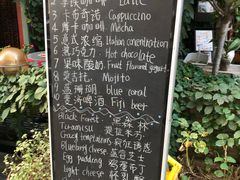 2 拿铁咖啡 Latte
3 卡布奇诺 Cappuccino
4 摩卡咖啡 Mocha
5 意式浓缩 Italian concentration
6 热巧克力 Hot chocolate
7 果味酸奶 Fruit flavored yogurt
8 莫吉托 Mojito
9 蓝珊瑚 blue coral
10 斐济啤酒 Fiji beer
Black Forest 黑森林
Tiramisu 提拉米苏
Crazy temptations 疯狂诱惑
Blueberry cheese 蓝莓芝士
Egg pudding 鸡蛋布丁
light cheese 轻乳酪